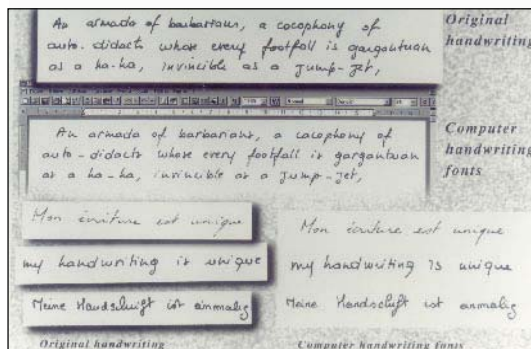 An armada of barbarians, a cacophony of
auto-didacts whose every footfall is gargantuan
as a ha-ha, invincible as a jump-jet,
Original
handwriting
An armada of barbarians, a cacophony of
auto-didacts whose every footfall is gargantuan
as a ha-ha, invincible as a jump-jet,
Computer
handwriting
fonts
Mon écriture est unique
my handwriting is unique
Meine Handschrift ist einmalig
Original handwriting
Mon écriture est unique
my handwriting is unique
Meine Handschrift ist einmalig
Computer handwriting fonts